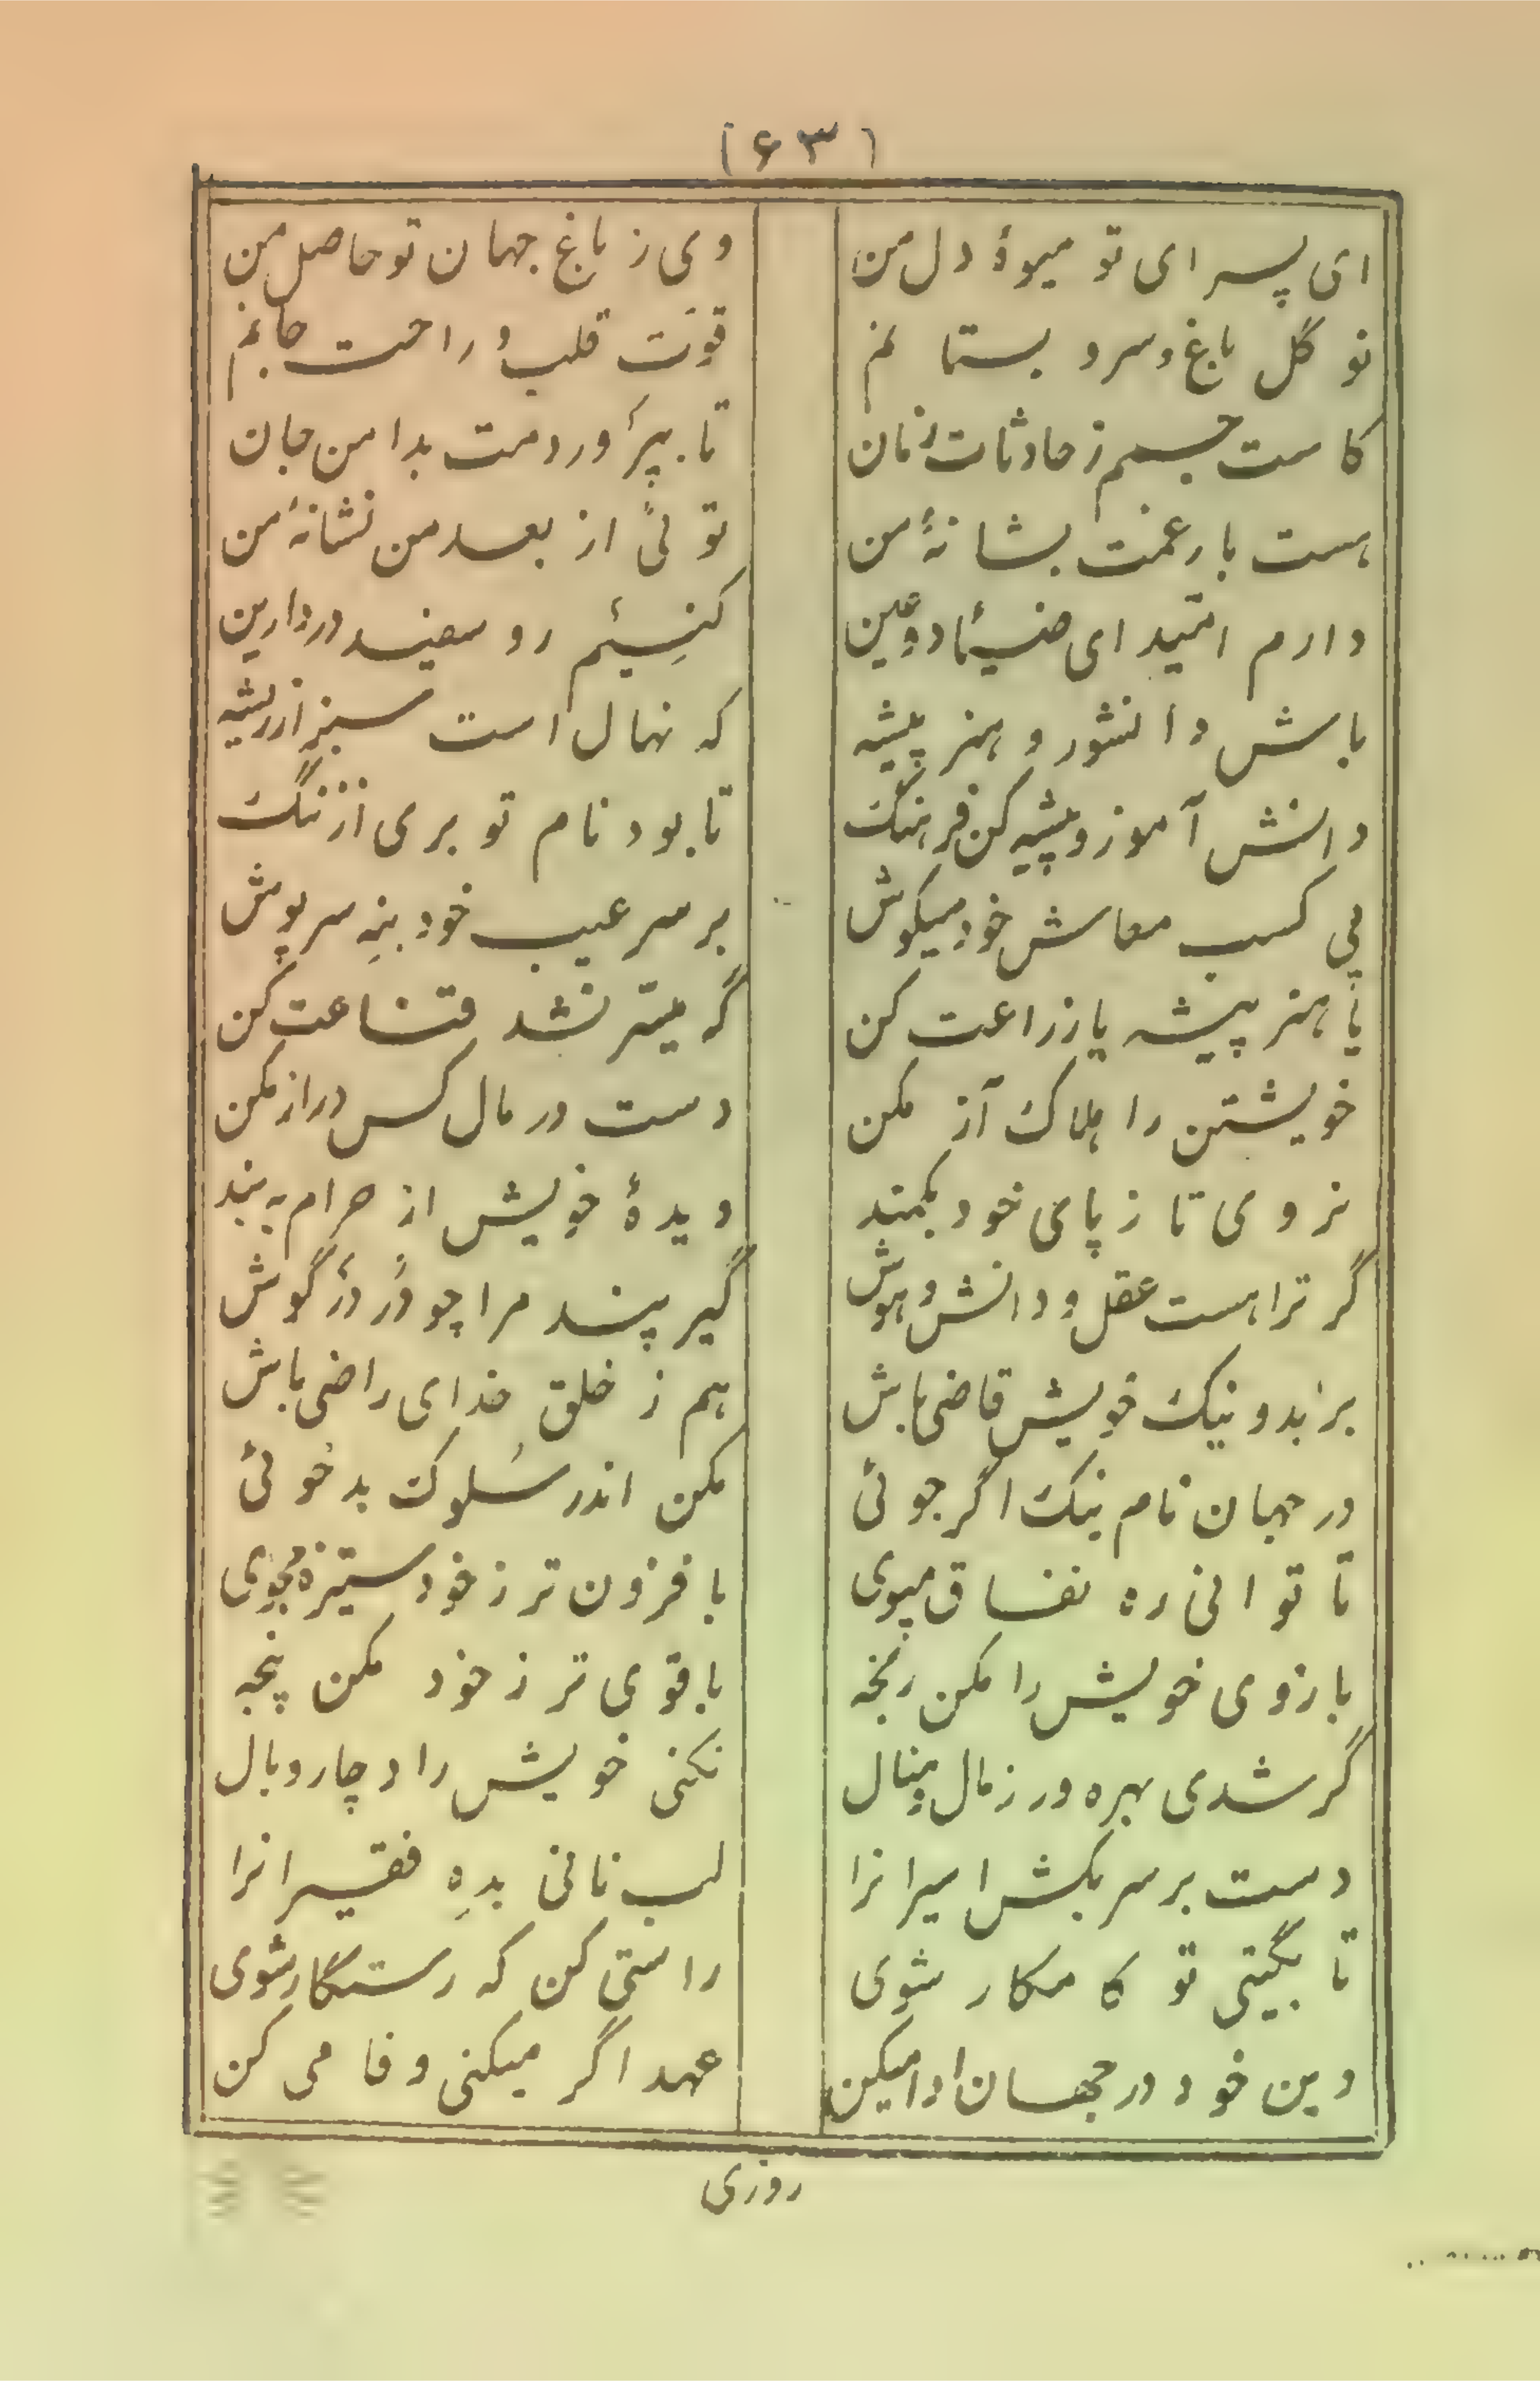 (۶۳)
ای پسر ای تو میوهٔ دل من وی ز باغ جهان تو حاصل من
تو گل باغ و سرو بستانم قوّت قلب و راحت جانم
کاست جسمم ز حادثات زمان تا بپرَوردمت بدامن جان
هست بار غمت بشانهٔ من تو ئی از بعد من نشانهٔ من
دارم امّید ای ضیاء دو عین کنِیَم رو سفید در دارین
باش دانشور و هنر پیشه که نهال است سبز از ریشه
دانش آموز و پیشه کن فرهنگ تا بود نام تو بری از ننگ
پی کسب معاش خود میکوش بر سر عیب خود بنِه سرپوش
یا هنر پیشه یا زراعت کن گر میسّر نشد قناعت کن
خویشتن را هلاک آز مکن دست در مال کس دراز مکن
نروی تا ز پای خود بکمند دیدهٔ خویش از حرام به بند
گر ترا هست عقل و دانش و هوش گیر پند مرا چو دُر در گوش
بر بد و نیک خویش قاضی باش هم ز خلق خدای راضی باش
در جهان نام نیک اگر جوئی مکن اندر سُلوک بد خوئی
تا توانی ره نفاق مپوی با فزون تر ز خود ستیزه مجوی
بازوی خویش را مکن رنجه با قوی تر ز خود مکن پنجه
گر شدی بهره ور ز مال و منال نکنی خویش را دچار وبال
دست بر سر بکش اسیرانرا لب نانی بدِه فقیرانرا
تا بگیتی تو کامکار شوی راستی کن که رستگار شوی
دین خود در جهان ادا میکن عهد اگر میکنی وفا می کن
روزی